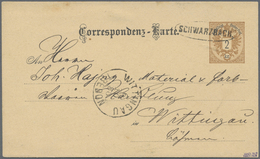 Correspondenz-Karte.
SCHWARZBACH
2
An Herrn
Joh. Hajny Material u. Farb-
Handlung
WITTINGAU
Wittingau
Böhmen